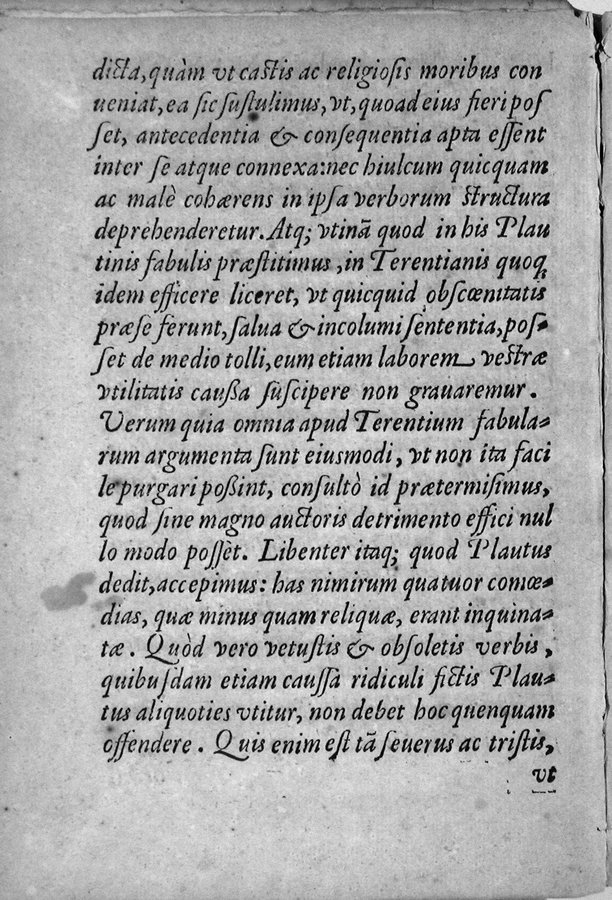 dicta, quàm vt castis ac religiosis moribus con
ueniat, ea sic sustulimus, vt, quoad eius fieri pos
set, antecedentia & consequentia apta essent
inter se atque connexa: nec hiulcum quicquam
ac malè cohærens in ipsa verborum structura
deprehenderetur. Atq; vtinã quod in his Plau
tinis fabulis præstitimus, in Terentianis quoq;
idem efficere liceret, vt quicquid obscœnitatis
præse ferunt, salua & incolumi sententia, pos-
set de medio tolli, eum etiam laborem vestræ
vtilitatis caußa suscipere non grauaremur.
Verum quia omnia apud Terentium fabula-
rum argumenta sunt eiusmodi, vt non ita faci
le purgari poßint, consultò id prætermisimus,
quod sine magno auctoris detrimento effici nul
lo modo posset. Libenter itaq; quod Plautus
dedit, accepimus: has nimirum quatuor comœ-
dias, quæ minus quam reliquæ, erant inquina-
tæ. Quòd vero vetustis & obsoletis verbis,
quibusdam etiam caussa ridiculi fictis Plau-
tus aliquoties vtitur, non debet hoc quenquam
offendere. Quis enim est tã seuerus ac tristis,
vt